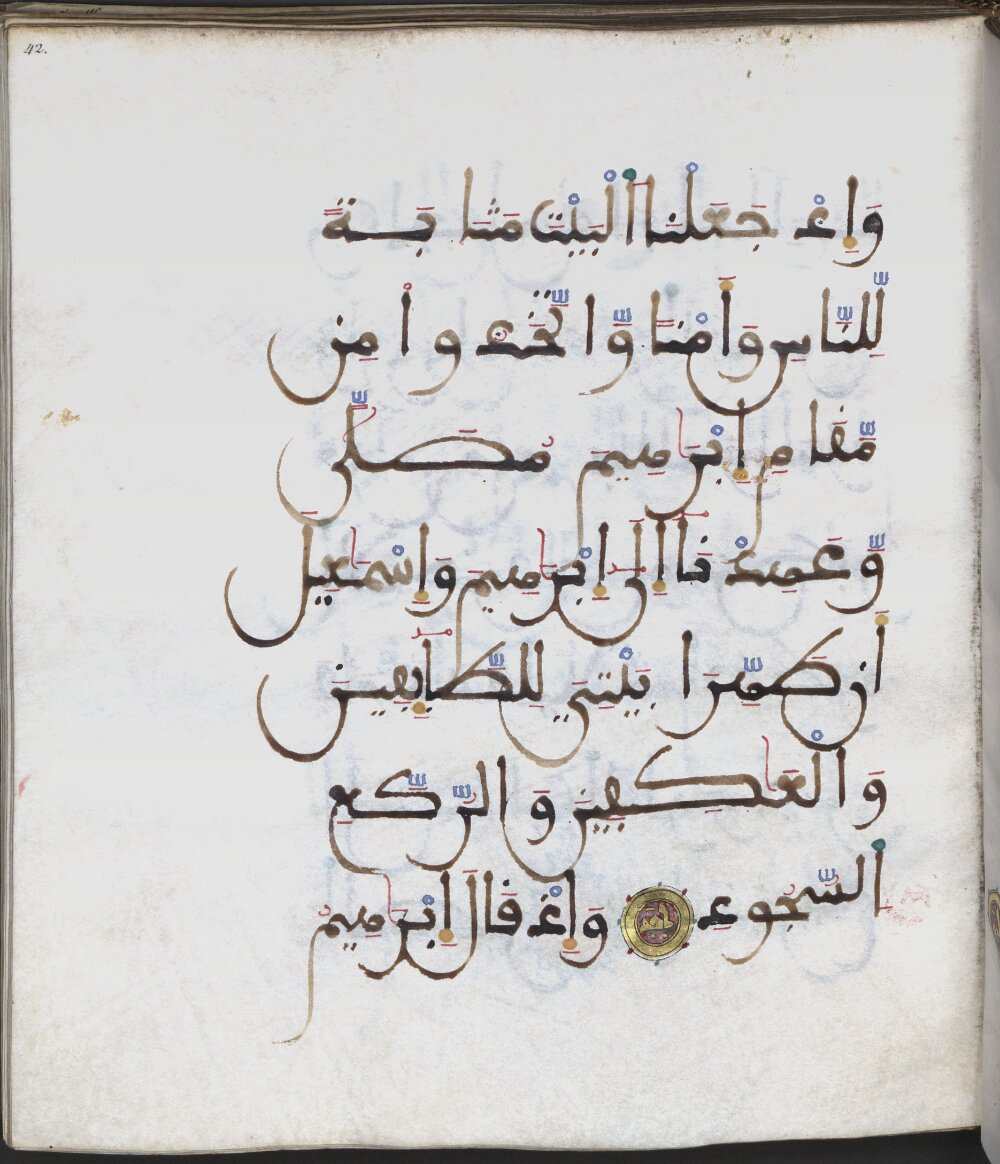 42.
وَإِذْ جَعَلْنَا الْبَيْتَ مَثَابَةً
لِّلنَّاسِ وَأَمْنًا وَّاتَّخَذُواْ مِن
مَّقَامِ إِبْرَٰهِيمَ مُصَلًّى
وَّعَهِدْنَا إِلَىٰ إِبْرَٰهِيمَ وَإِسْمَٰعِيلَ
أَن طَهِّرَا بَيْتِيَ لِلطَّآئِفِينَ
وَالْعَٰكِفِينَ وَالرُّكَّعِ
السُّجُودِ وَإِذْ قَالَ إِبْرَٰهِيمُ